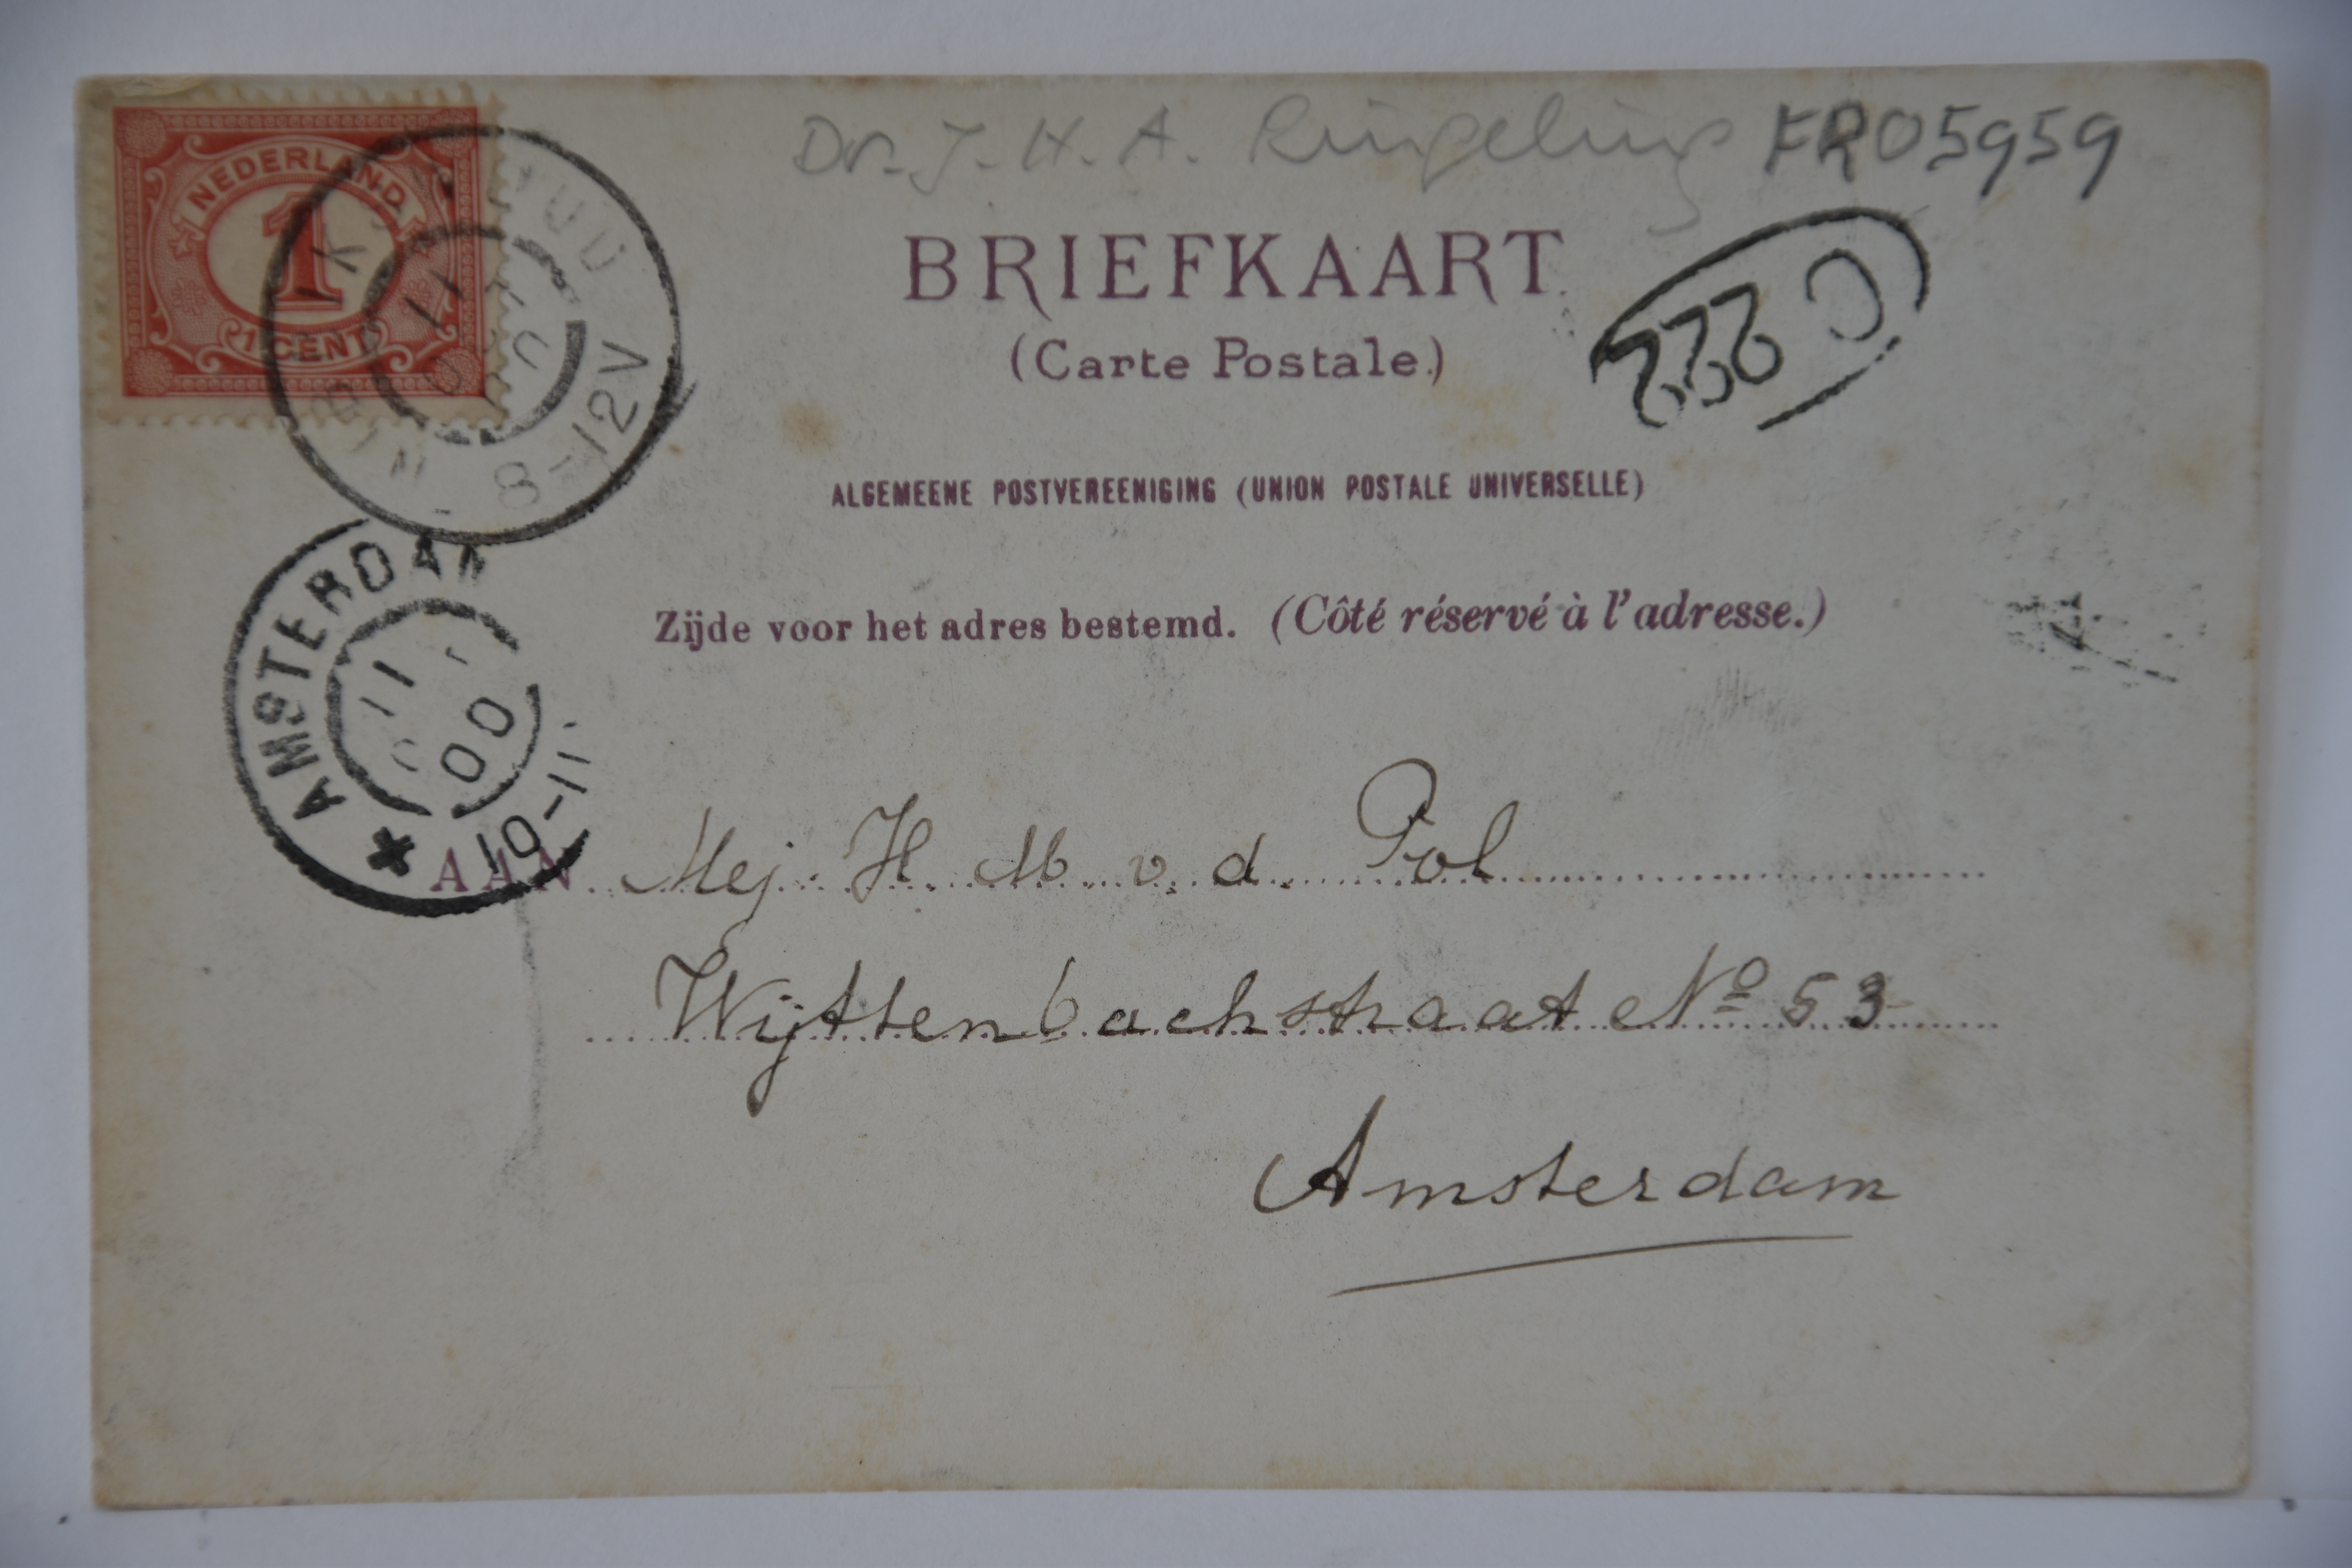 Dr. J. H. A. Ringeling FR05959
NEDERLAND
1
1 CENT
8-12V
BRIEFKAART
(Carte Postale.)
C 222
ALGEMEENE POSTVEREENIGING (UNION POSTALE UNIVERSELLE)
AMSTERDAM
11
00
10-11
Zijde voor het adres bestemd. (Côté réservé à l'adresse.)
AAN Mej. H. M. v. d. Pol
Wijttenbachstraat No 53
Amsterdam